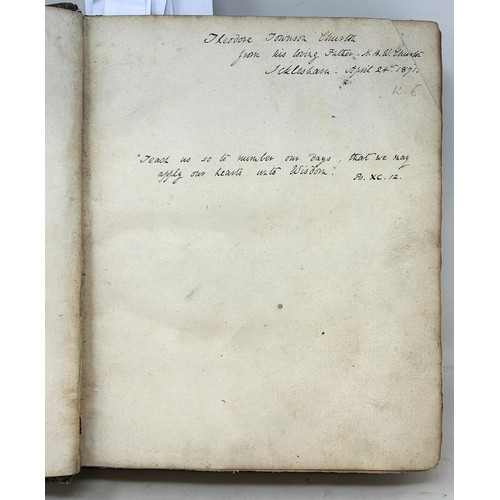 Theodore Townson Churton
from his loving Father. H. B. W. Churton
Icklesham. April 24th 1871.
"Teach us so to number our days, that we may
apply our hearts unto Wisdom." Ps. XC. 12.